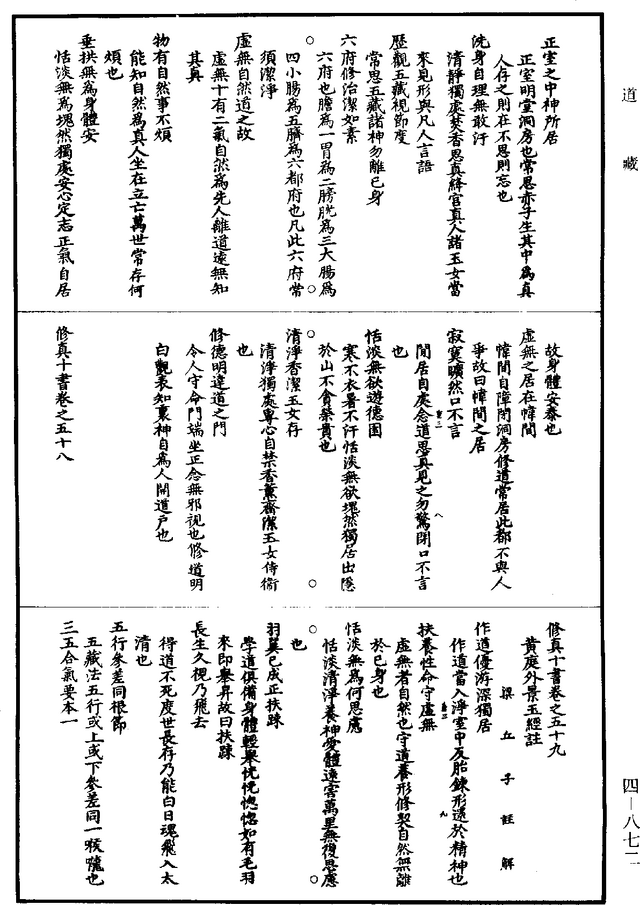 道藏
正室之中神所居
正室明堂洞房也常思赤子生其中為真
人存之則在不思則忘也
洗身自理無敢汗
清靜獨處焚香思真絳宮真人諸玉女當
來見形與凡人言語
歷觀五藏視節度
常思五藏諸神勿離己身
六府修治潔如素
六府也膽為一胃為二膀胱為三大腸為
四小腸為五臍為六都府也凡此六府常
須潔淨
虛無自然道之故
虛無十有二氣自然為先人離道遠無知
其真
物有自然事不煩
能知自然為真人坐在立亡萬世常存何
煩也
垂拱無為身體安
恬淡無為塊然獨處安心定志正氣自居
故身體安泰也
虛無之居在幃間
幃間自障閉洞房修道常居此都不與人
爭故曰幃間之居
寂寞曠然口不言
閒居自處念道思真見之勿驚閉口不言
也
恬淡無欲遊德園
寒不衣暑不汗恬淡無欲塊然獨居出隱
於山不貪榮貴也
清淨香潔玉女存
清淨獨處專心自禁香薰齋潔玉女侍衛
也
修德明達道之門
令人守命門端坐正念無邪視也修道明
白觀表知裏神自為人開道戶也
修真十書卷之五十八
修真十書卷之五十九
黃庭外景玉經註
梁丘子註解
作道優游深獨居
作道當入淨室中反胎鍊形還於精神也
扶養性命守虛無
虛無者自然也守道養形修契自然無離
於己身也
恬淡無為何思慮
恬淡清淨養神愛體遠害萬里無復思慮
也
羽翼已成正扶踈
學道俱備身體輕舉恍恍惚惚如有毛羽
來即舉昇故曰扶踈
長生久視乃飛去
得道不死度世長存乃能白日魂飛入太
清也
五行參差同根節
五藏法五行或上或下參差同一喉嚨也
三五合氣要本一
四—八七二